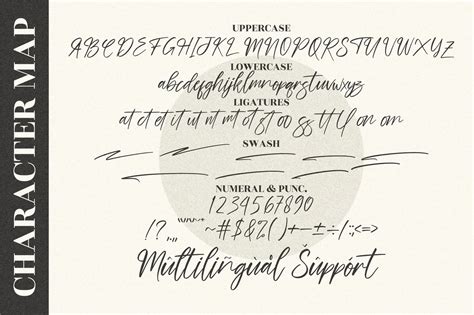 CHARACTER MAP
UPPERCASE
ABCDEFGHIJKLMNOPQRSTUVWXYZ
LOWERCASE
abcdefghijklmnopqrstuvwxyz
LIGATURES
at et it ut nt mt ot st oo ss tt ll on om
SWASH
NUMERAL & PUNC.
1234567890
~#$&%()+-±÷/:;<=>
Múltìlíñgùál Šûppórt